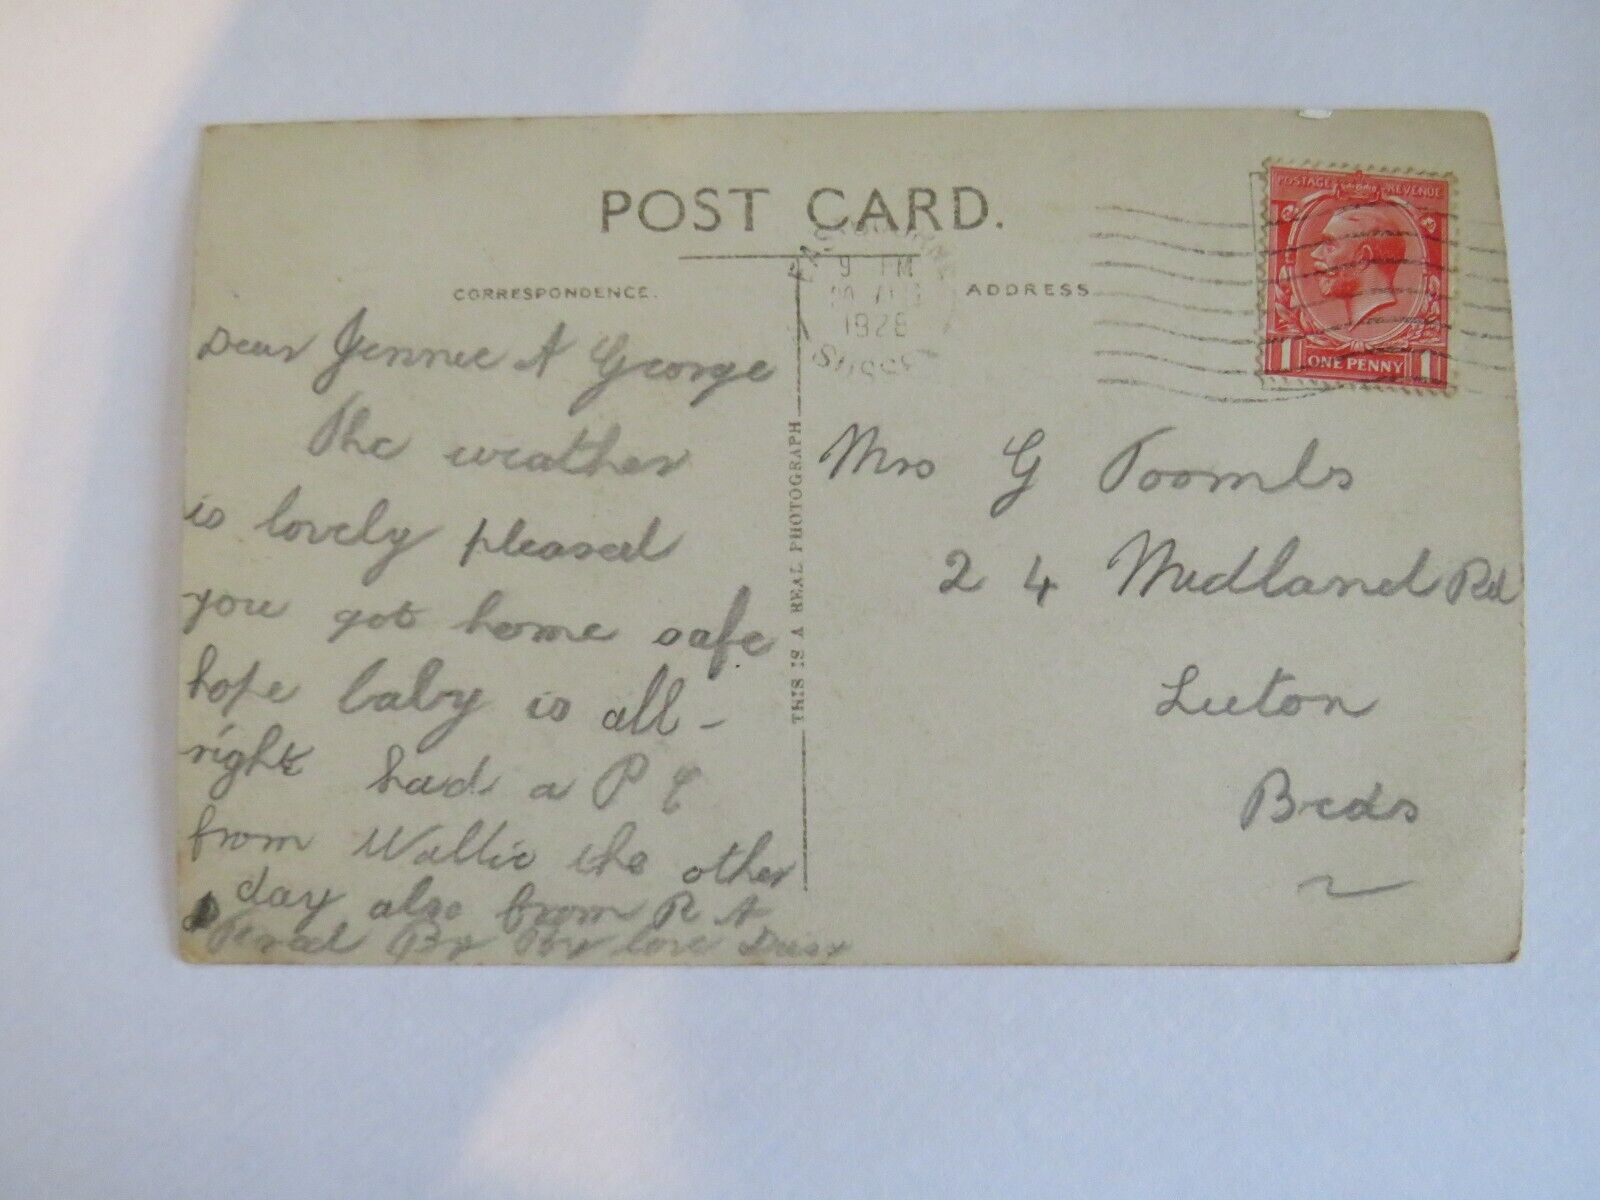 POST CARD.
CORRESPONDENCE.
ADDRESS
Dear Jennie & George
The weather
is lovely pleased
you got home safe
hope baby is all-
right had a P C
from Wallie the other
day also from R A
By By love
THIS IS A REAL PHOTOGRAPH
9 PM
1928
SUSSEX
POSTAGE REVENUE
1 ONE PENNY 1
Mrs G Toombs
24 Midland Rd
Luton
Beds